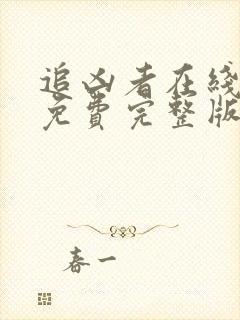 追凶者在线
免费完整版
春一